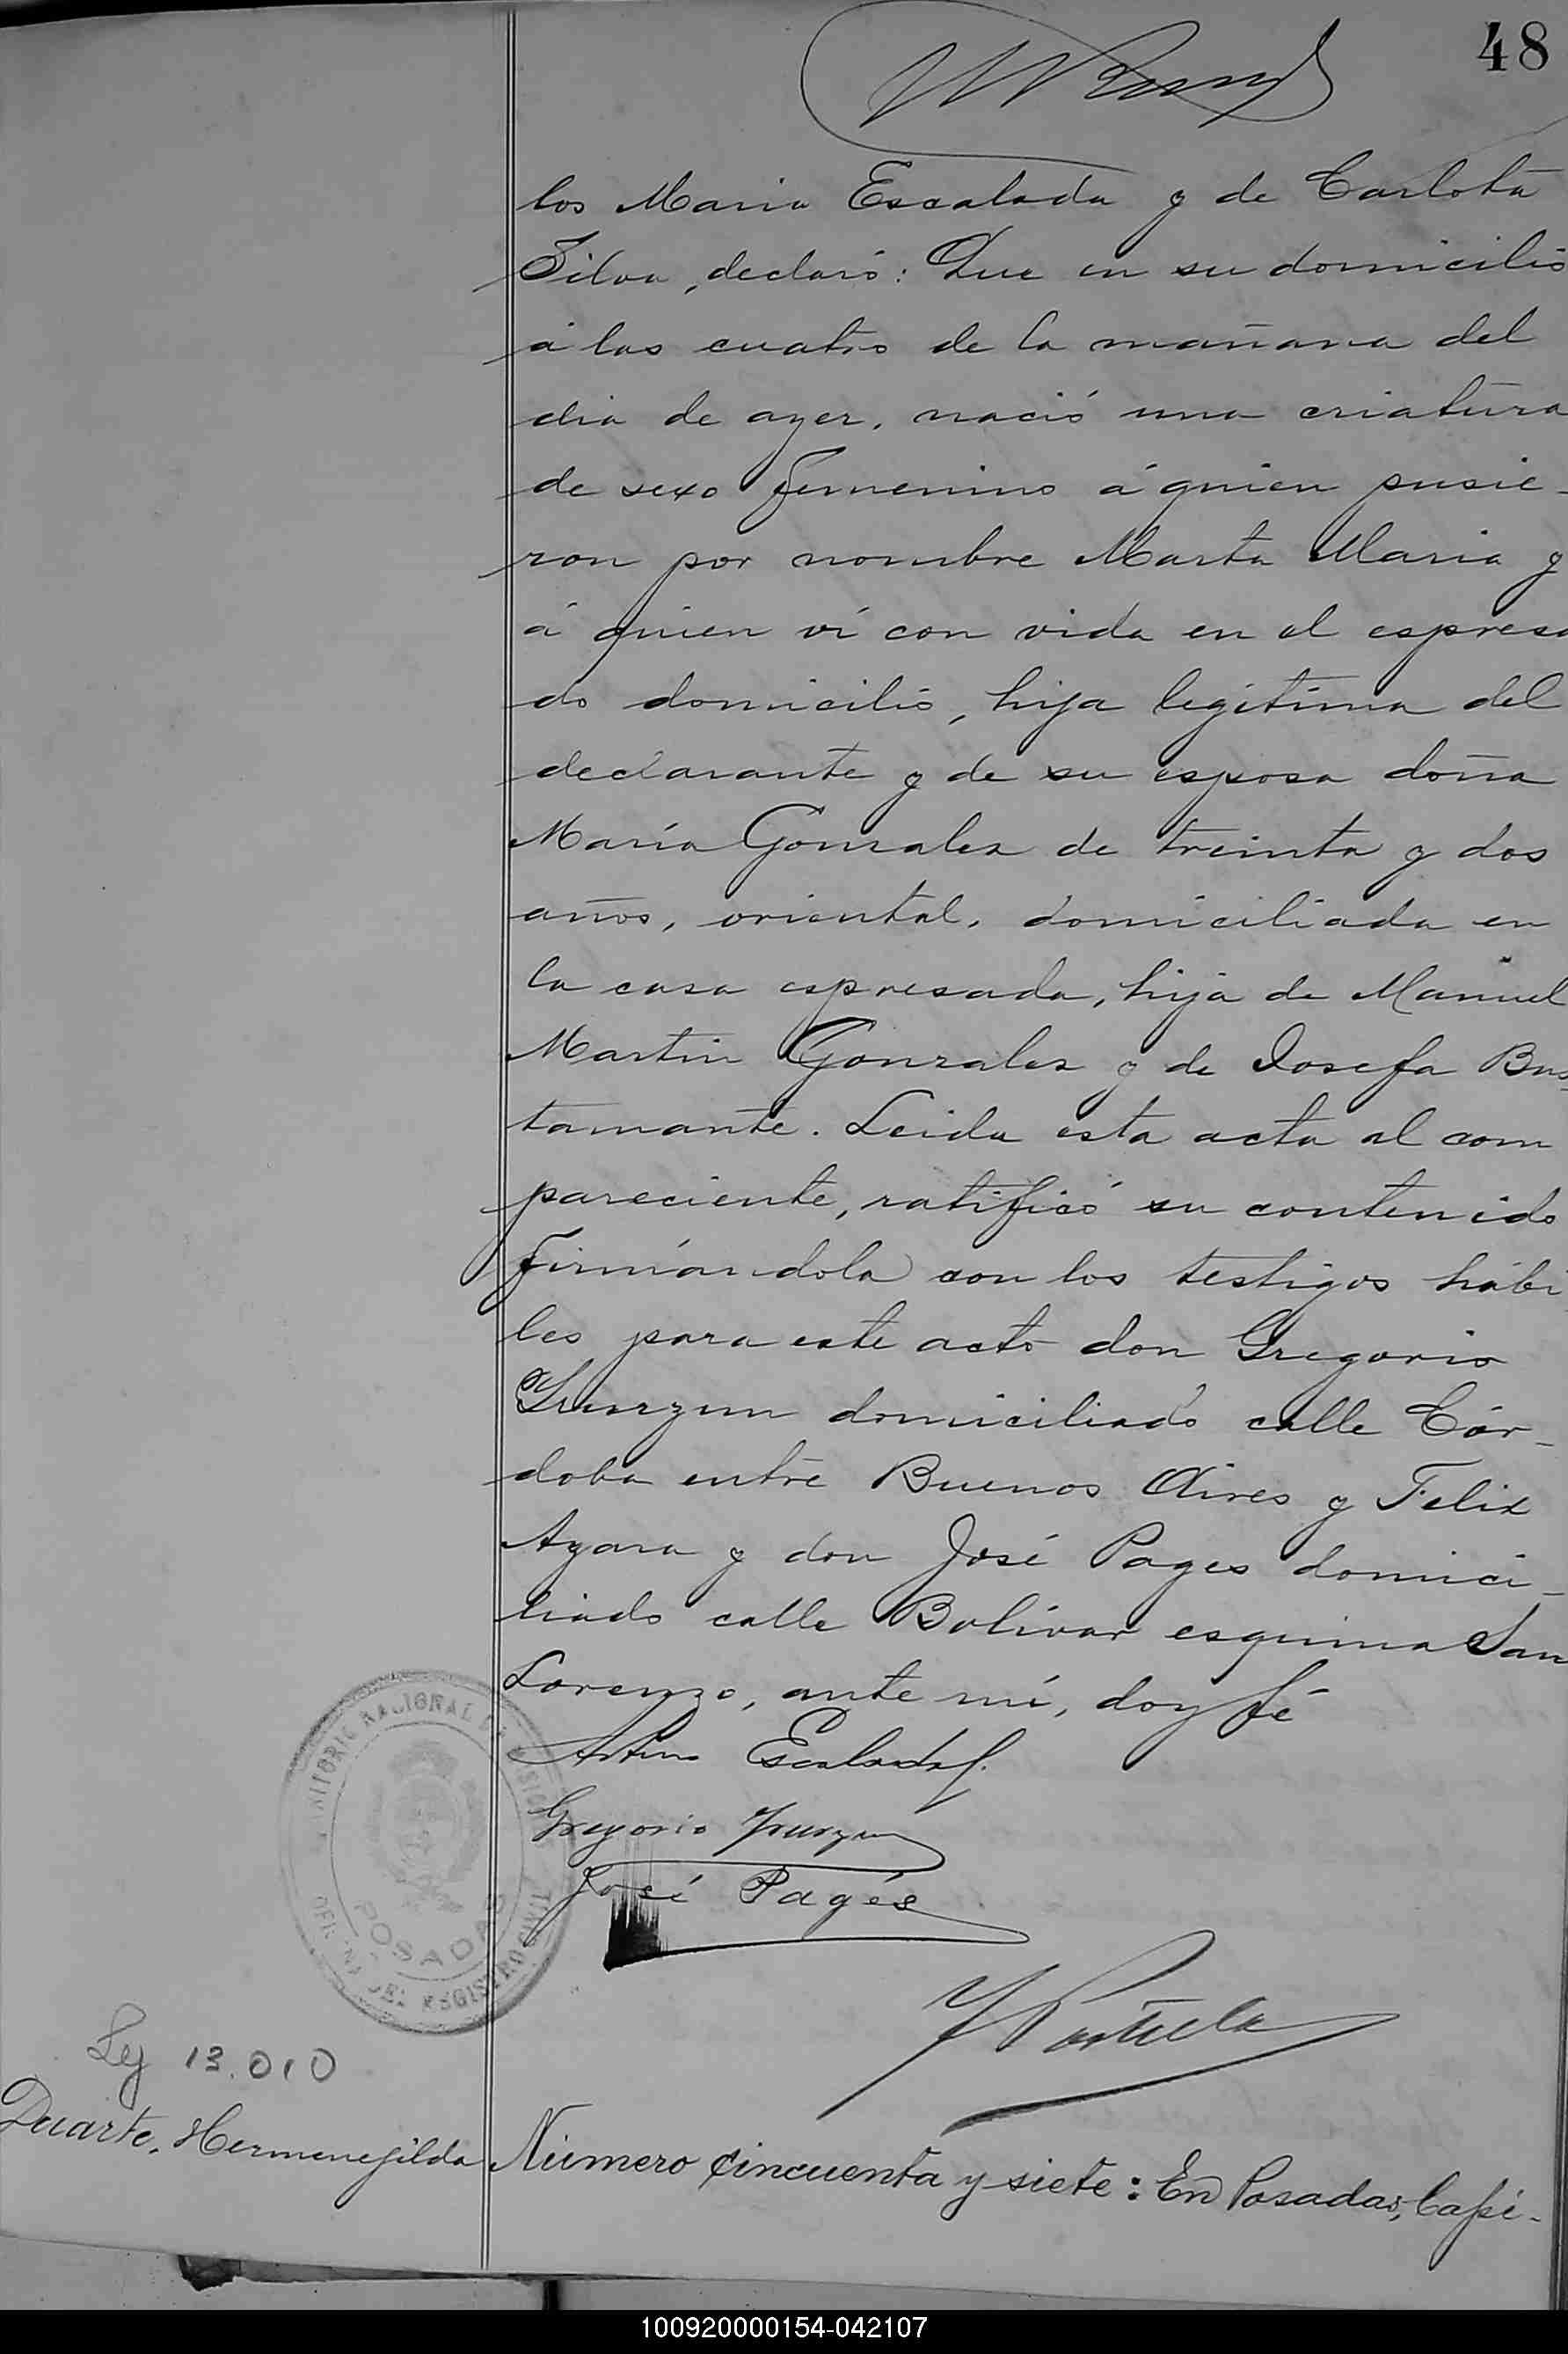 48
los Maria Escalada y de Carlota
Silva, declaró: Que en su domicilio
á las cuatro de la mañana del
dia de ayer, nació una criatura
de sexo femenino á quien pusie-
ron por nombre Marta Maria y
á quien ví con vida en el espresa
do domicilio, hija legítima del
declarante y de su esposa doña
María Gonzalez de treinta y dos
años, oriental, domiciliada en
la casa espresada, hija de Manuel
Martin Gonzalez y de Josefa Bus-
tamante. Leida esta acta al com
pareciente, ratificó su contenido
firmándola con los testigos hábi
les para este acto don Gregorio
domiciliado calle Cór-
doba entre Buenos Aires y Felix
Azara y don José Pages domici-
liado calle Bolívar esquina San
Lorenzo, ante mí, doy fé
Arturo Escalada
Gregorio
José Pagés
TERRITORIO NACIONAL DE MISIONES
POSADAS
OFICINA DEL REGISTRO CIVIL
Ley 13.010
Duarte, Hermenegilda
Número cincuenta y siete: En Posadas, Capi-
100920000154-042107